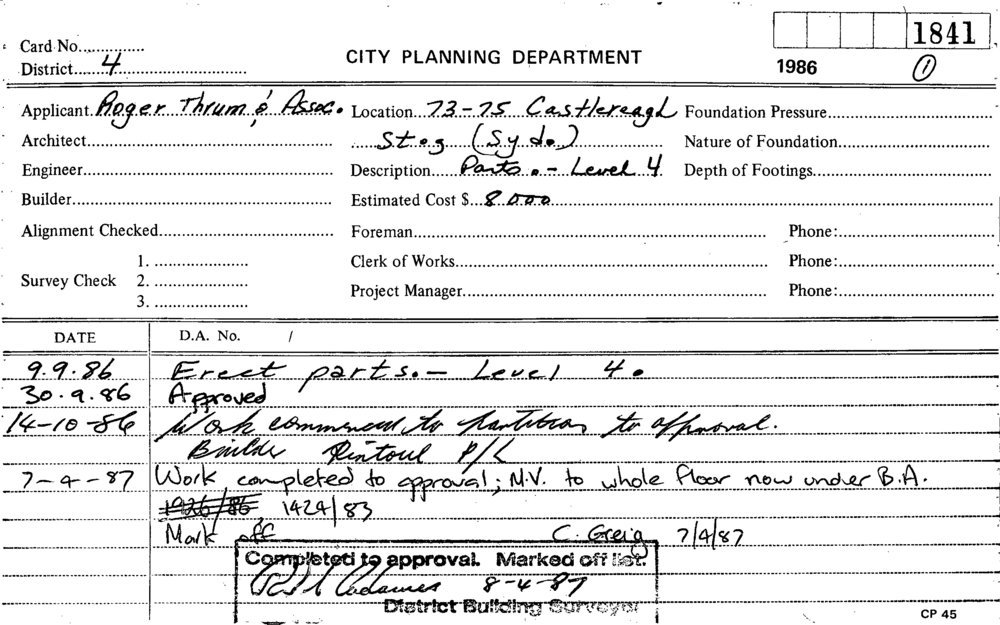 1841
Card No.
District 4
CITY PLANNING DEPARTMENT
1986
1
Applicant Roger Thrum & Assoc. Location 73-75 Castlereagh Foundation Pressure
Architect Sts (Syd.) Nature of Foundation
Engineer Description Parts. - Level 4 Depth of Footings
Builder Estimated Cost $ 8000
Alignment Checked Foreman Phone:
1. Clerk of Works Phone:
Survey Check 2.
3. Project Manager Phone:
DATE D.A. No. /
9.9.86 Erect parts. - Level 4.
30.9.86 Approved
14-10-86 Work commenced to partitions to approval.
Builder Rintoul P/L
7-4-87 Work completed to approval; M.V. to whole floor now under B.A.
1926/86 1424/83
Mark off C. Greig 7/4/87
Completed to approval. Marked off list.
8-4-87
District Building Surveyor
CP 45